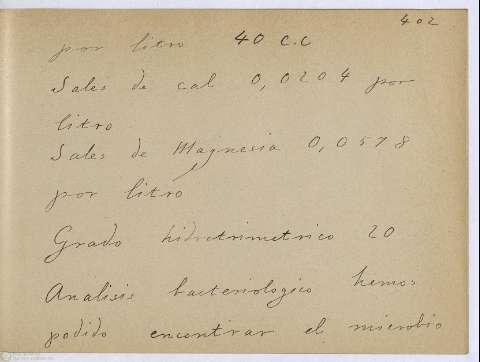 402
por litro 40 c.c
Sales de cal 0,0204 por
litro
Sales de Magnesia 0,0578
por litro
Grado hidrotrimetrico 20
Analisis bacteriologico hemos
podido encontrar el microbio